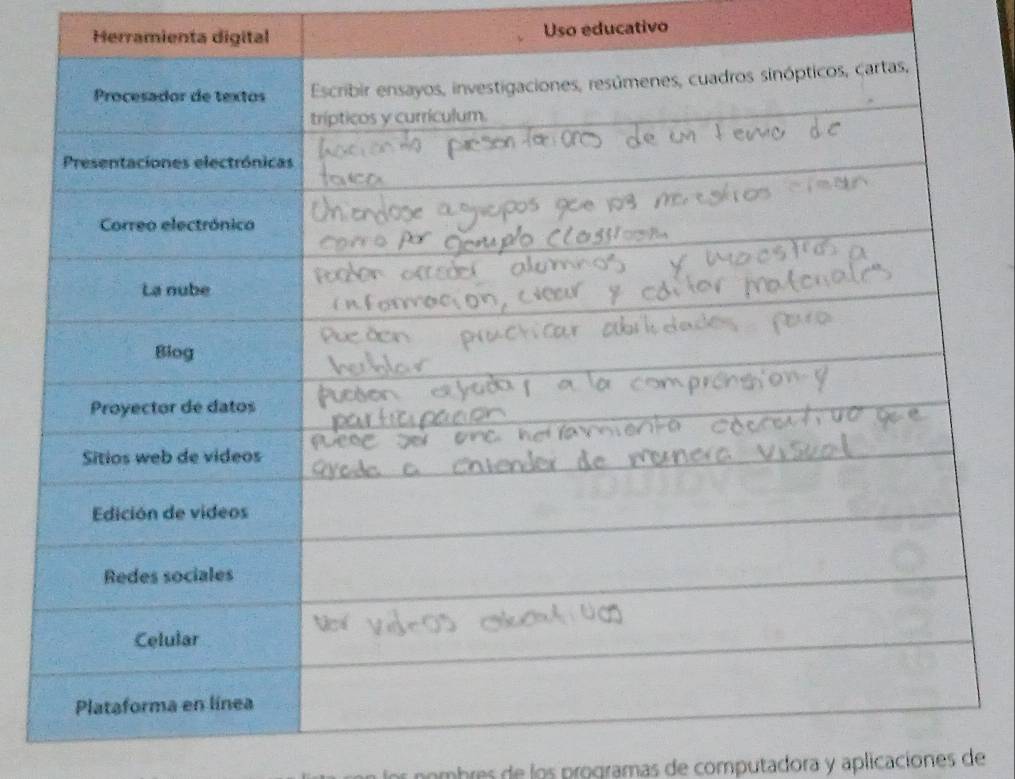 Herramienta digital Uso educativo
Procesador de textos Escribir ensayos, investigaciones, resúmenes, cuadros sinópticos, cartas,
trípticos y currículum.
Presentaciones electrónicas haciendo presentaciones de un tema de
tarea
Correo electrónico Uniendose a grupos que los maestros crean
como por ejemplo classroom
La nube alumnos y maestros a
información, crear y editar materiales
Blog Pueden practicar abilidades para
hablar
Proyector de datos Pueden ayudar a la comprension y
participacion
Sitios web de videos puede ser una herramienta educativo que
ayuda a entender de manera visual
Edición de videos
Redes sociales
Celular Ver videos educativos
Plataforma en línea
los nombres de los programas de computadora y aplicaciones de